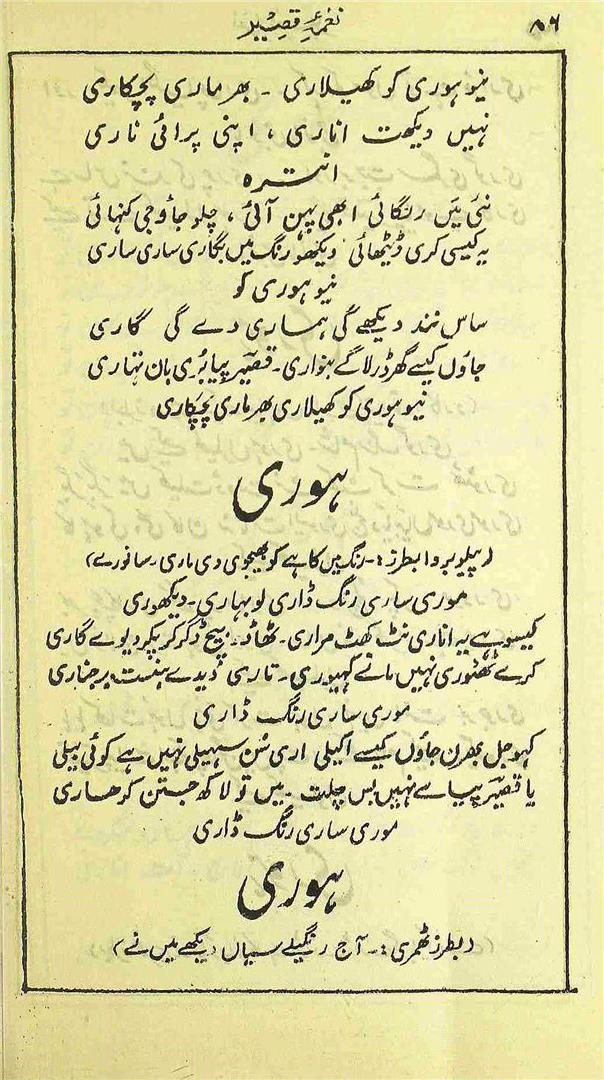 ۵۶
نغمۂ قصیر
نیو ہوری کو کھیلاری ۔ بھر ماری پچکاری
نہیں دیکھت اناری ، اپنی پرائی ناری
انترہ
نئی میں رنگائی ابھی پہن آئی ، چلو جاؤ جی کنہائی
یہ کیسی کری ڈیٹھائی دیکھو رنگ میں بگاری ساری ساری
نیو ہوری کو
ساس نند دیکھے گی ہماری دے گی گاری
جاؤں کیسے گھر ڈر لاگے بنواری ۔ قصیرؔ پیا بُری بان تہاری
نیو ہوری کو کھیلاری بھر ماری پچکاری
ہوری
(پیلو بروا بطرز :۔ رنگ میں کاہے کو بھیجوی دی ماری ۔ سانورے)
موری ساری رنگ ڈاری لو بہاری ۔ دیکھوری
کیسو ہے یہ اناری نٹ کھٹ مراری ۔ ٹھاڈ ۔ بیچ ڈگر کر پکر دیوے گاری
کرے ٹھٹوری نہیں مانے کہیوری ۔ تاری دیدے ہنست
موری ساری رنگ ڈاری
کہو جل بھرن جاؤں کیسے اکیلی اری سُن سہیلی نہیں ہے کوئی بیلی
یا قصیرؔ پیا سے نہیں بس چلت ۔ میں تو لاکھ جتن کر ھاری
موری ساری رنگ ڈاری
ہوری
(بطرز ٹھمری :۔ آج رنگیلے سیاں دیکھے میں نے)